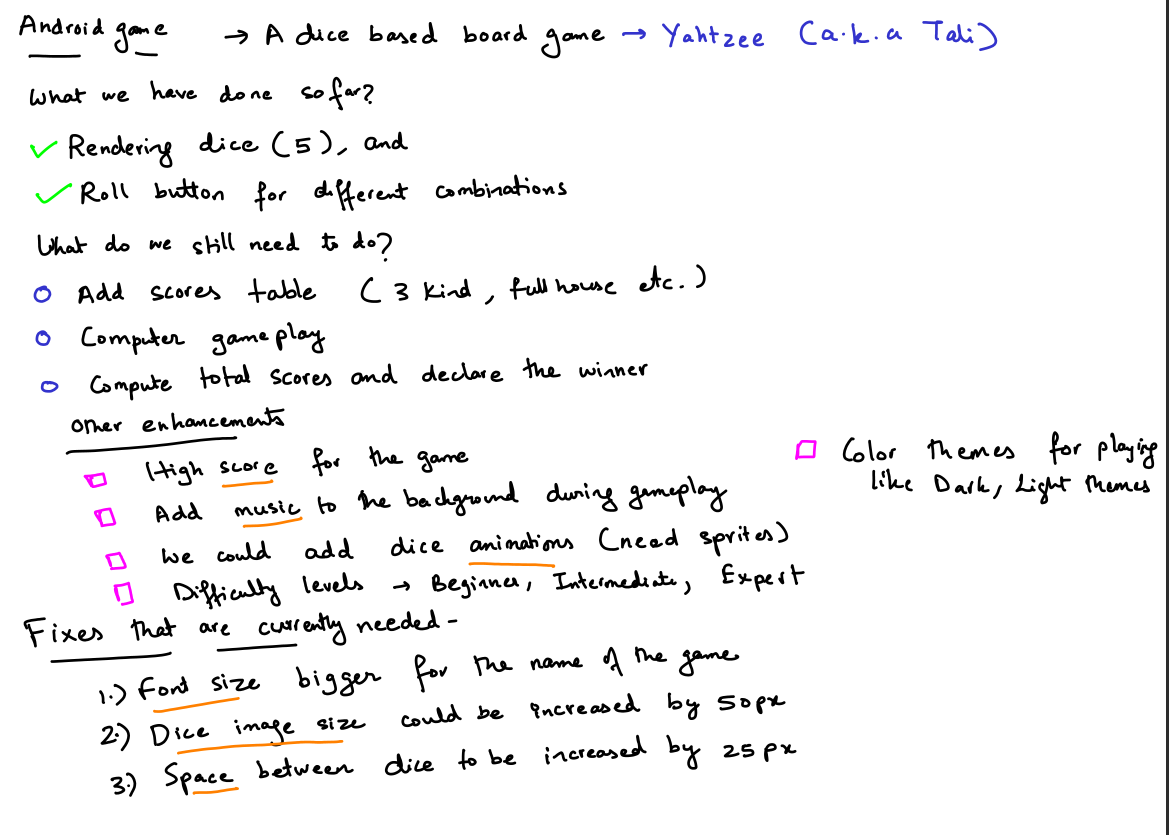 Android game → A dice based board game → Yahtzee (a.k.a Tali)
What we have done so far?
✓ Rendering dice (5), and
✓ Roll button for different combinations
What do we still need to do?
○ Add scores table (3 kind, full house etc.)
○ Computer gameplay
○ Compute total scores and declare the winner
Other enhancements
□ High score for the game
□ Add music to the background during gameplay
□ We could add dice animations (need sprites)
□ Difficulty levels → Beginner, Intermediate, Expert
□ Color themes for playing
like Dark, Light themes
Fixes that are currently needed -
1.) Font size bigger for the name of the game
2.) Dice image size could be increased by 50px
3.) Space between dice to be increased by 25px